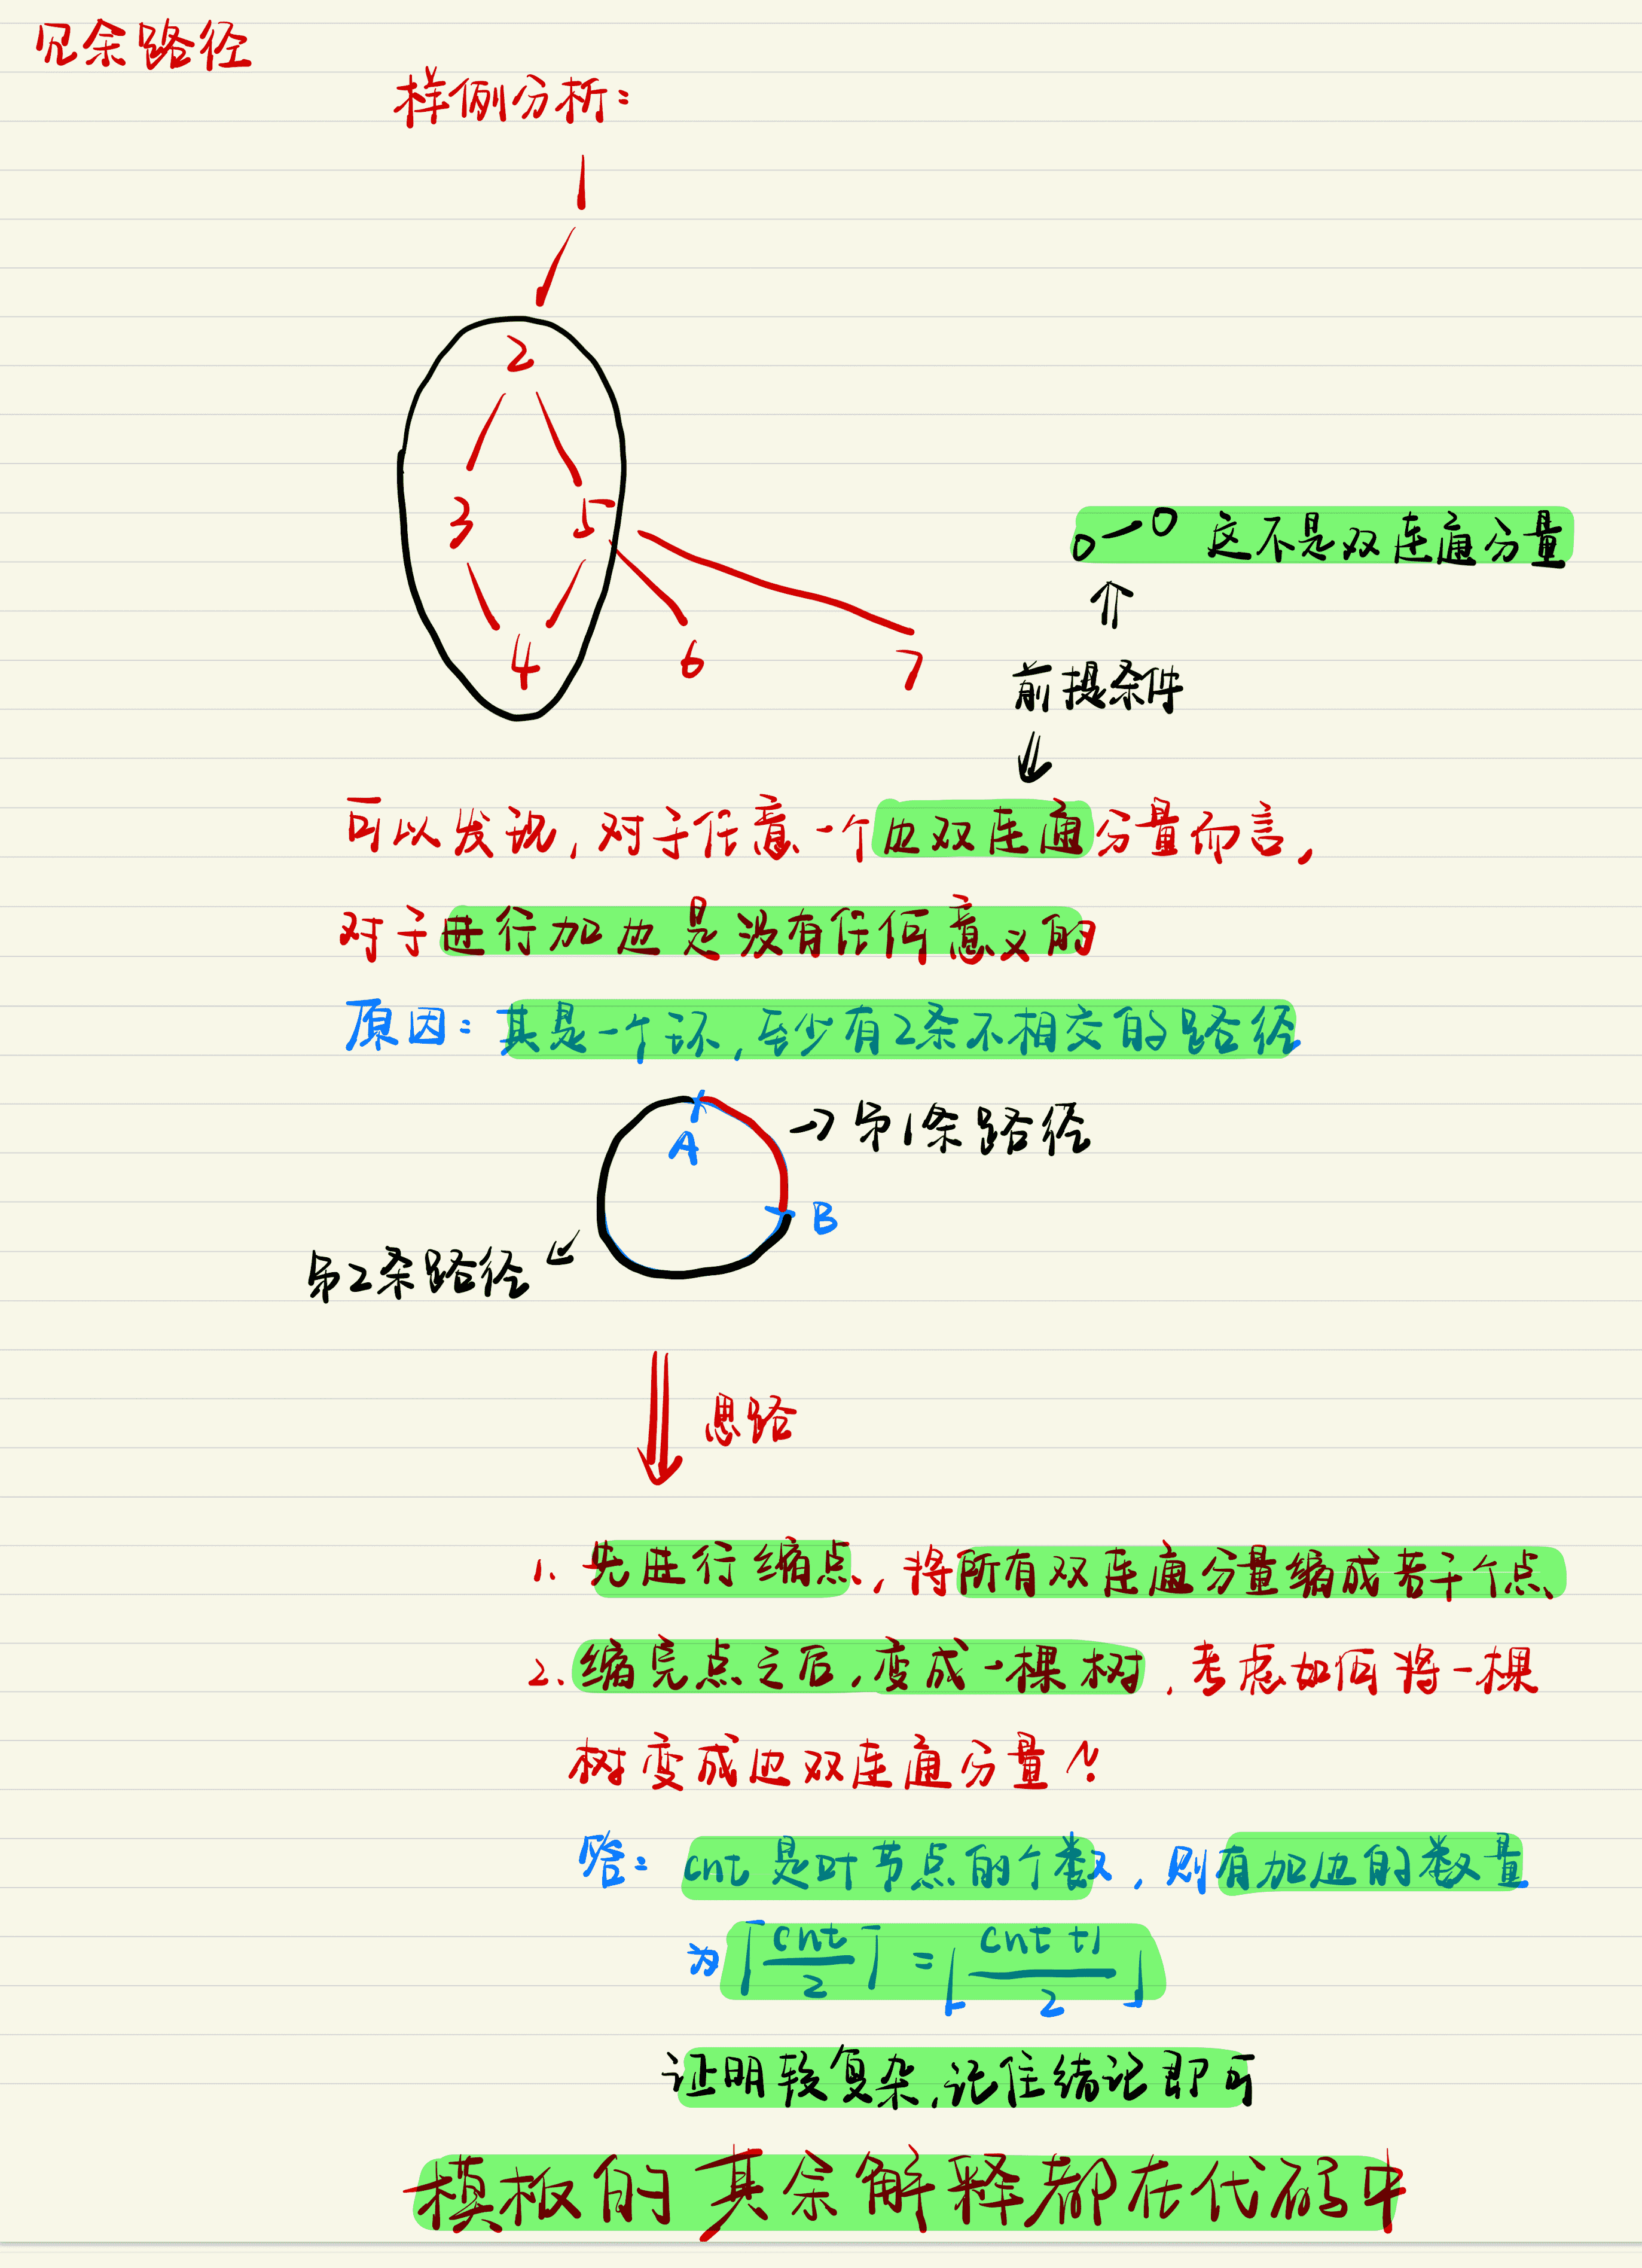 冗余路径
样例分析：
1
2
3 5
4 6 7
这不是双连通分量
前提条件
可以发现，对于任意一个边双连通分量而言，
对于进行加边是没有任何意义的
原因：其是一个环，至少有2条不相交的路径
A →第1条路径
B
第2条路径
思路
1. 先进行缩点，将所有双连通分量缩成若干个点、
2、缩完点之后，变成一棵树，考虑如何将一棵
树变成边双连通分量？
答：cnt 是叶节点的个数，则有加边的数量
为 ⌈cnt/2⌉ = ⌊(cnt+1)/2⌋
证明较复杂，记住结论即可
模板的其余解释都在代码中